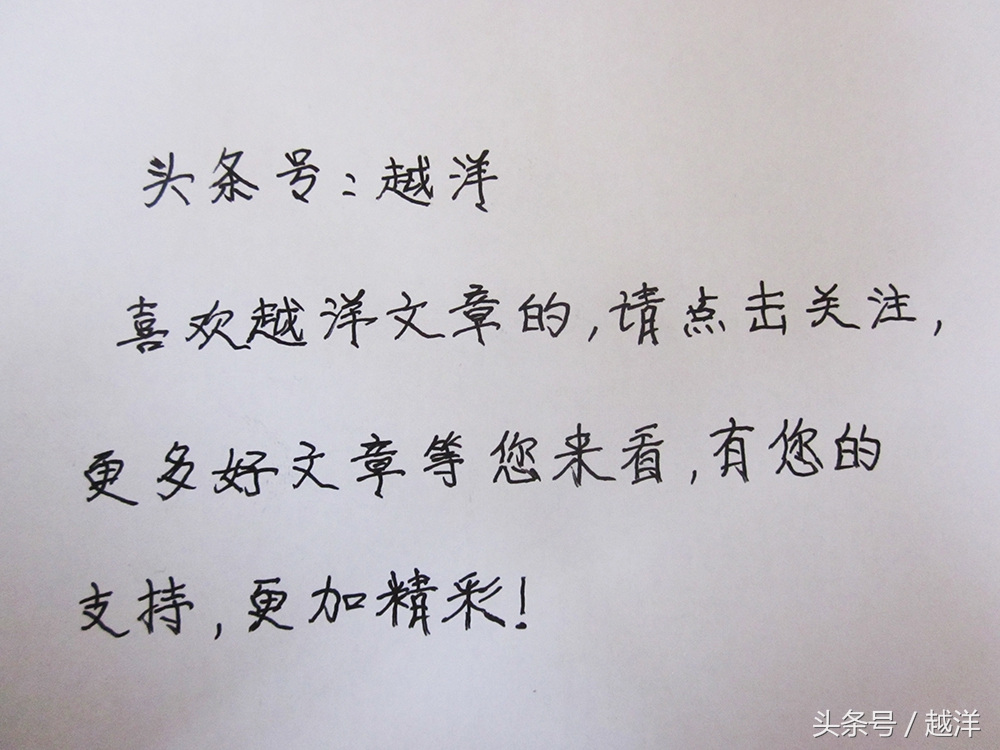 头条号：越洋
喜欢越洋文章的,请点击关注,
更多好文章等您来看,有您的
支持,更加精彩!
头条号 / 越洋